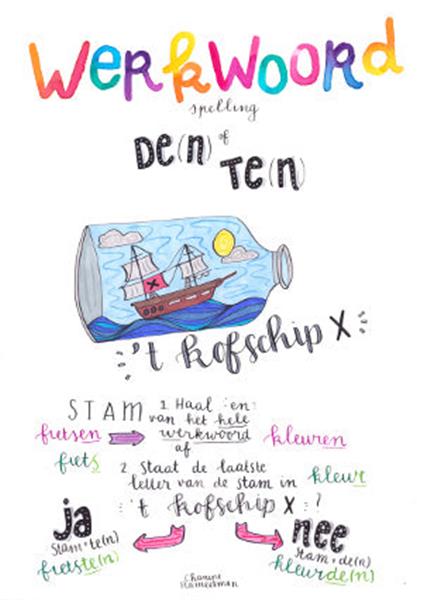 WerkWoord
spelling
DE(n) of
TE(n)
't kofschip X
STAM 1. Haal 'en'
van het hele
fietsen werkwoord kleuren
af
fiets 2. Staat de laatste kleur
letter van de stam in
't kofschip X ?
ja nee
stam+te(n) stam+de(n)
fietste(n) kleurde(n)